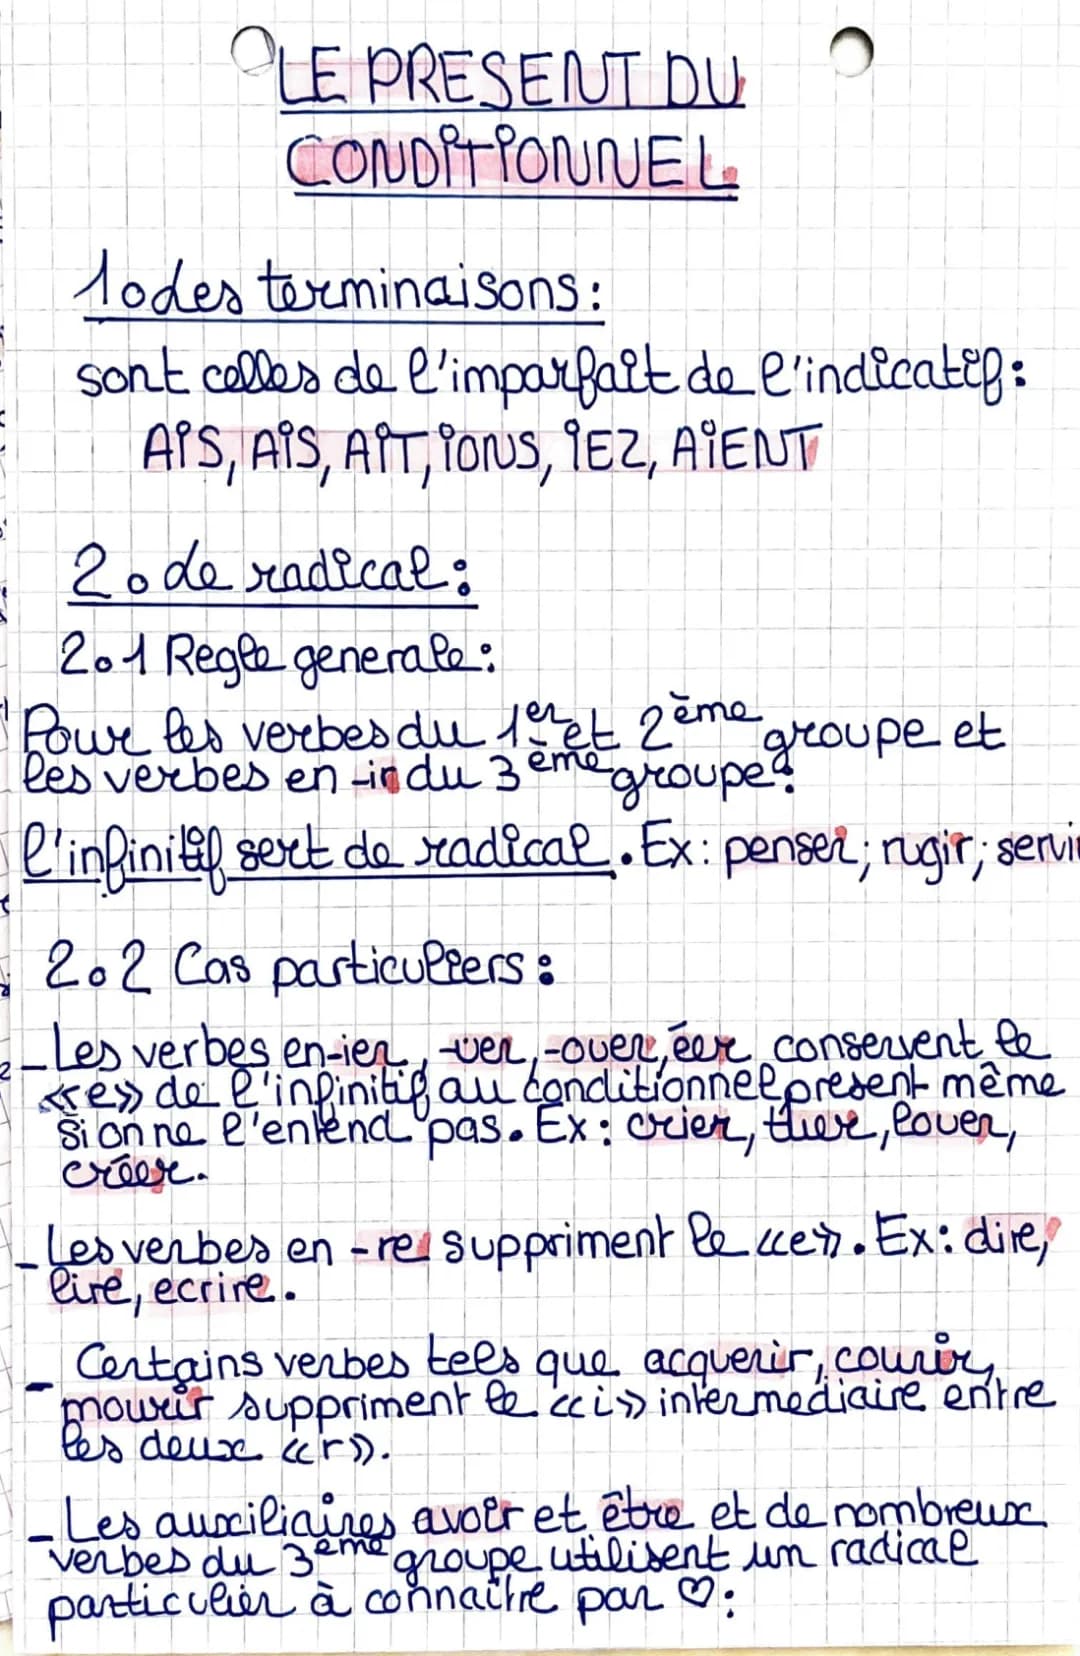 LE PRESENT DU
CONDITIONNEL
1. des terminaisons:
sont celles de l'imparfait de l'indicatif:
AIS, AIS, AIT, IONS, IEZ, AIENT
2. de radical:
2.1 Regle generale:
Pour les verbes du 1er et 2ème groupe et
les verbes en -ir du 3ème groupe:
l'infinitif sert de radical. Ex: penser; rugir; servir
2.2 Cas particuliers:
- Les verbes en -ier, -uer, -ouer, éer conservent le
«e» de l'infinitif au conditionnel present même
si on ne l'entend pas. Ex: crier, tuer, louer,
créer.
- Les verbes en -re suppriment le «e». Ex: dire,
lire, ecrire.
- Certains verbes tels que acquerir, courir,
mourir suppriment le «i» intermediaire entre
les deux «r».
- Les auxiliaires avoir et être et de nombreux
verbes du 3ème groupe utilisent un radical
particulier à connaître par ♡: